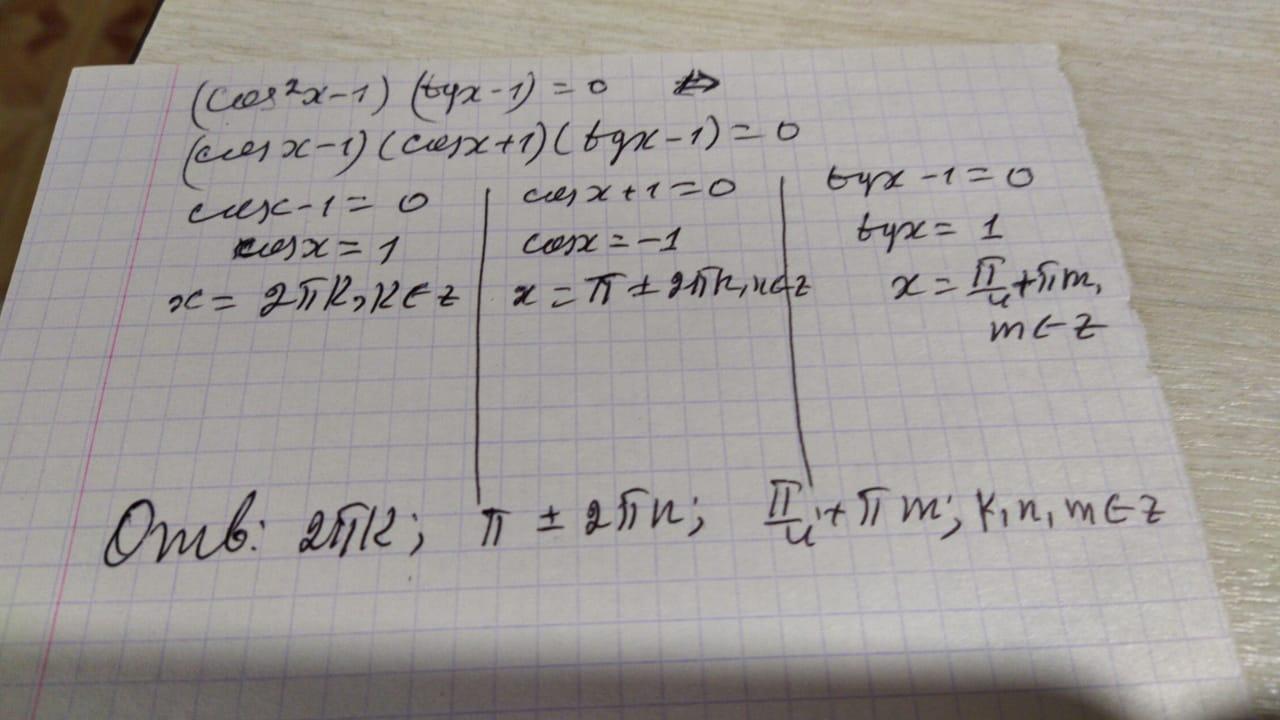 (cos²x-1) (tgx-1) = 0 ⇔
(cosx-1)(cosx+1)(tgx-1)=0
cosx-1=0
cosx=1
x=2πk, k∈z
cosx+1=0
cosx=-1
x=π±2πn, n∈z
tgx-1=0
tgx=1
x=π/4+πm,
m∈z
Отв: 2πk; π±2πn; π/4+πm; k,n,m∈z